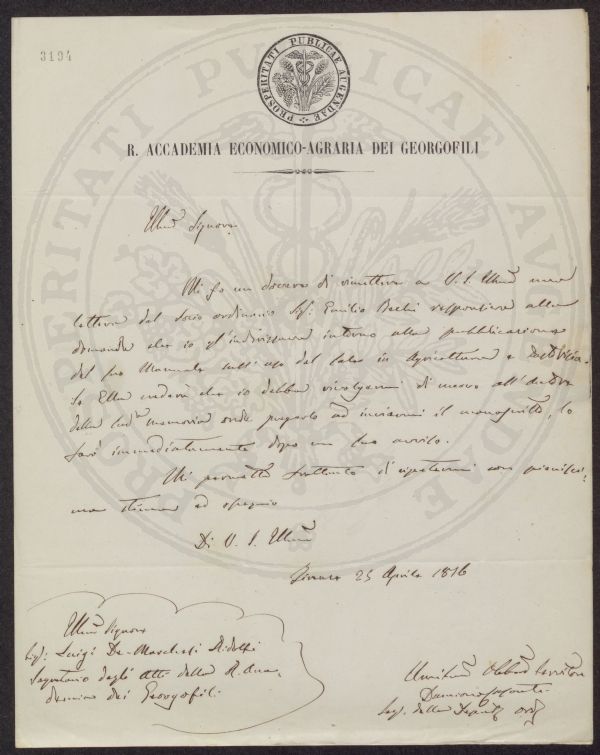 3194
PROSPERITATI PUBLICAE AUGENDAE
R. ACCADEMIA ECONOMICO-AGRARIA DEI GEORGOFILI
Illmo Signore
Mi fo un dovere di rimettere a V. S. Illma una
lettera del Socio ordinario Sig. Emilio Bechi responsiva alle
domande che io gl'indirizzava intorno alla pubblicazione
del suo Manuale sull'uso del sale in Agricoltura e Pastorizia.
Se Ella crederà che io debba rivolgermi di nuovo all'autore
della sudª memoria onde pregarlo ad inviarmi il manoscritto, lo
farò immediatamente dopo un suo avviso.
Mi permetto frattanto di ripetermi con pienissi-
ma stima ed ossequio
Di V. S. Illma
Firenze 25 Aprile
Illmo Signore
Sig. Luigi De-Marchesi Ridolfi
Segretario degli Atti della R. Acca-
demia dei Georgofili
Servitore
Seg. delle